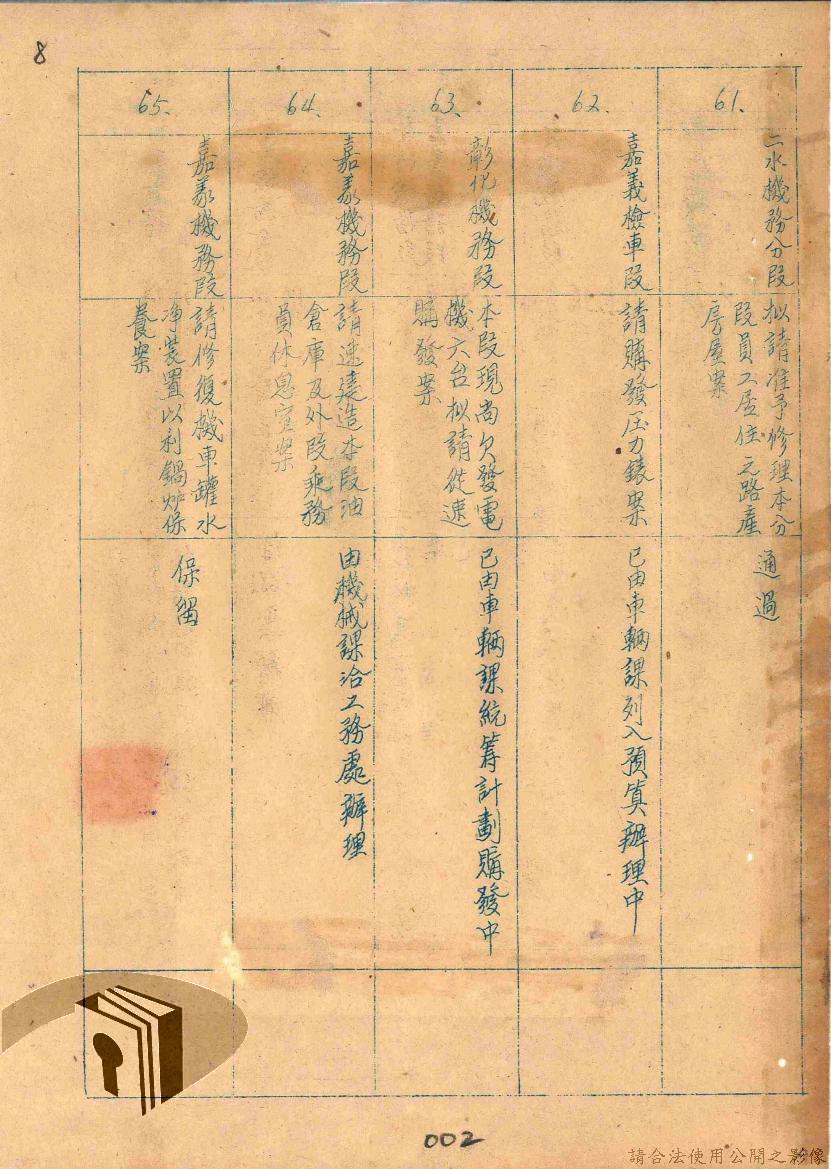 8
61.
二水機務分段
拟請准予修理本分
段員工居住之路產
房屋案
通過
62.
嘉義檢車段
請購發压力錶案
已由車輛課列入預算辦理中
63.
彰化機務段
本段現尚欠發電
機六台拟請從速
購發案
已由車輛課統籌計劃購發中
64.
嘉义機務段
請速建造本段油
倉庫及外段乘務
員休息室案
由機械課洽工務處辦理
65.
嘉义機務段
請修復機車罐水
净裝置以利鍋炉保
養案
保留
002
請合法使用公開之影像